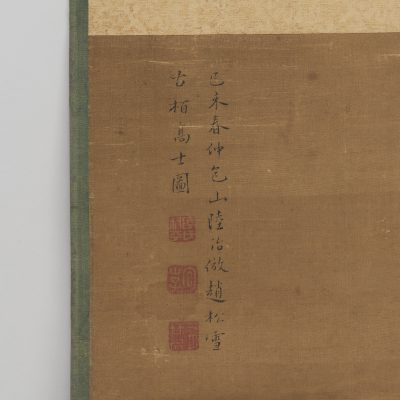 己未春仲包山陸治倣趙松雪
古柏高士圖